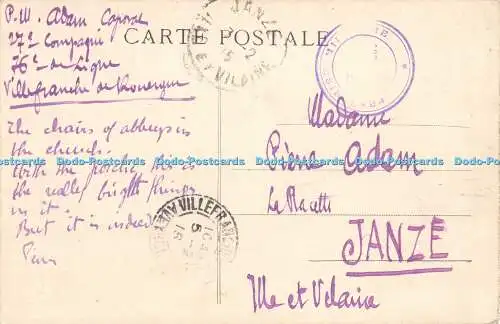 P.W. Adam Caporal
27e Compagnie
76e de Ligne
Villefranche de Rouergue
CARTE POSTALE
JANZE
ILLE ET VILAINE
The chairs of abbeys in
the church.
With the porche, this is
the really bright things
in it.
But it is indeed
VILLEFRANCHE
AVEYRON
Madame
Pierre Adam
La
JANZÉ
Ille et Vilaine
Dodo-Postcards Dodo-Postcards Dodo-Postcards Dodo-Postcards Dodo-Postcards